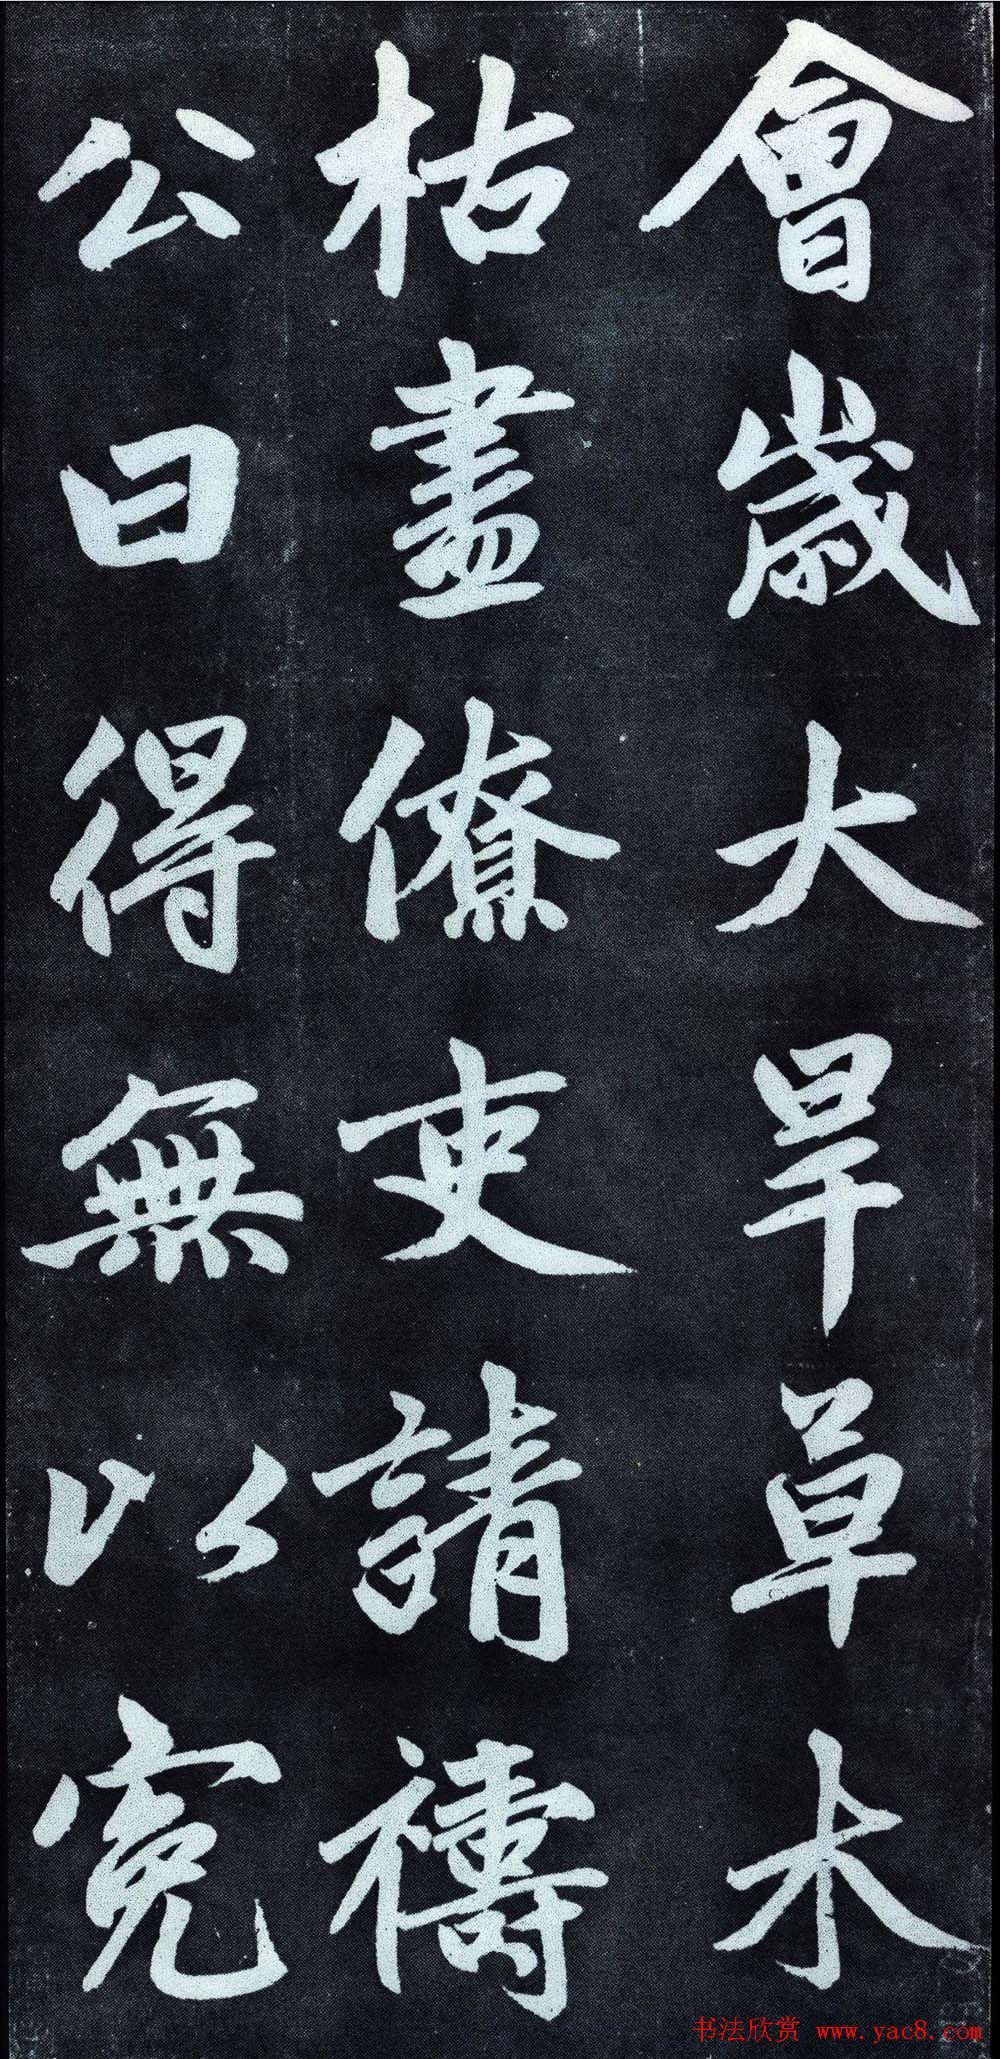 會歲大旱草木
枯盡僚吏請禱
公曰得無以冤
书法欣赏 www.yac8.com